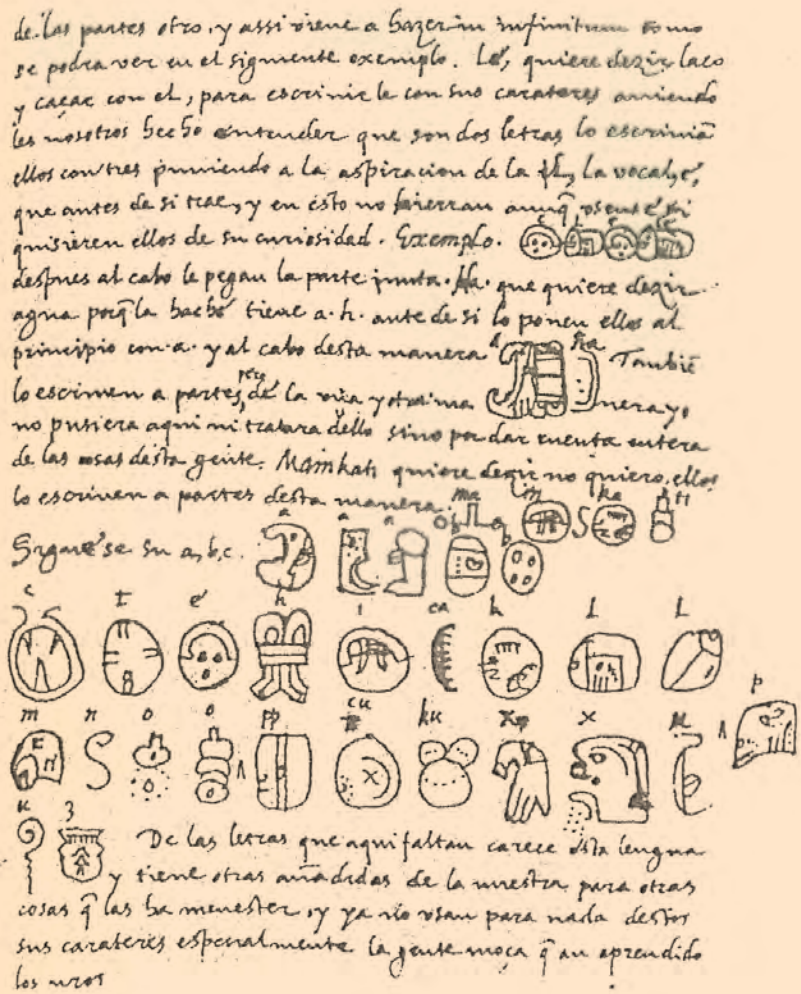 de las partes otro, y assi viene a hazer in infinitum como
se podra ver en el siguiente exemplo. Lé, quiere dezir laço
y caçar con el, para escrivirle con sus carateres aviendo
les nosotros hecho entender que son dos letras lo escrivian
ellos con tres puniendo a la aspiracion de la l, la vocal, é,
que antes de si trae, y en esto no hierran aunq̃ usense si
quisieren ellos de su curiosidad. Exemplo. e l e lé
despues al cabo le pegan la parte junta. Ha. que quiere dezir
agua porq̃ la haché tiene a.h. ante de si lo ponen ellos al
principio con a. y al cabo desta manera a ha Tambiẽ
lo escriven a partes, pero de la una y otra ma nera yo
no pusiera aqui ni tratara dello sino por dar cuenta entera
de las cosas desta gente. Mainkati quiere dezir no quiero, ellos
lo escriven a partes desta manera. ma in ka ti
Siguese su a, b, c. a a a b b
c t é h i ca k l l
m n o o pp cu ku x x u p
u z De las letras que aqui faltan carece esta lengua
y tiene otras añadidas de la nuestra para otras
cosas q̃ las ha menester, y ya no usan para nada destos
sus carateres especialmente la gente moça q̃ an aprendido
los nros